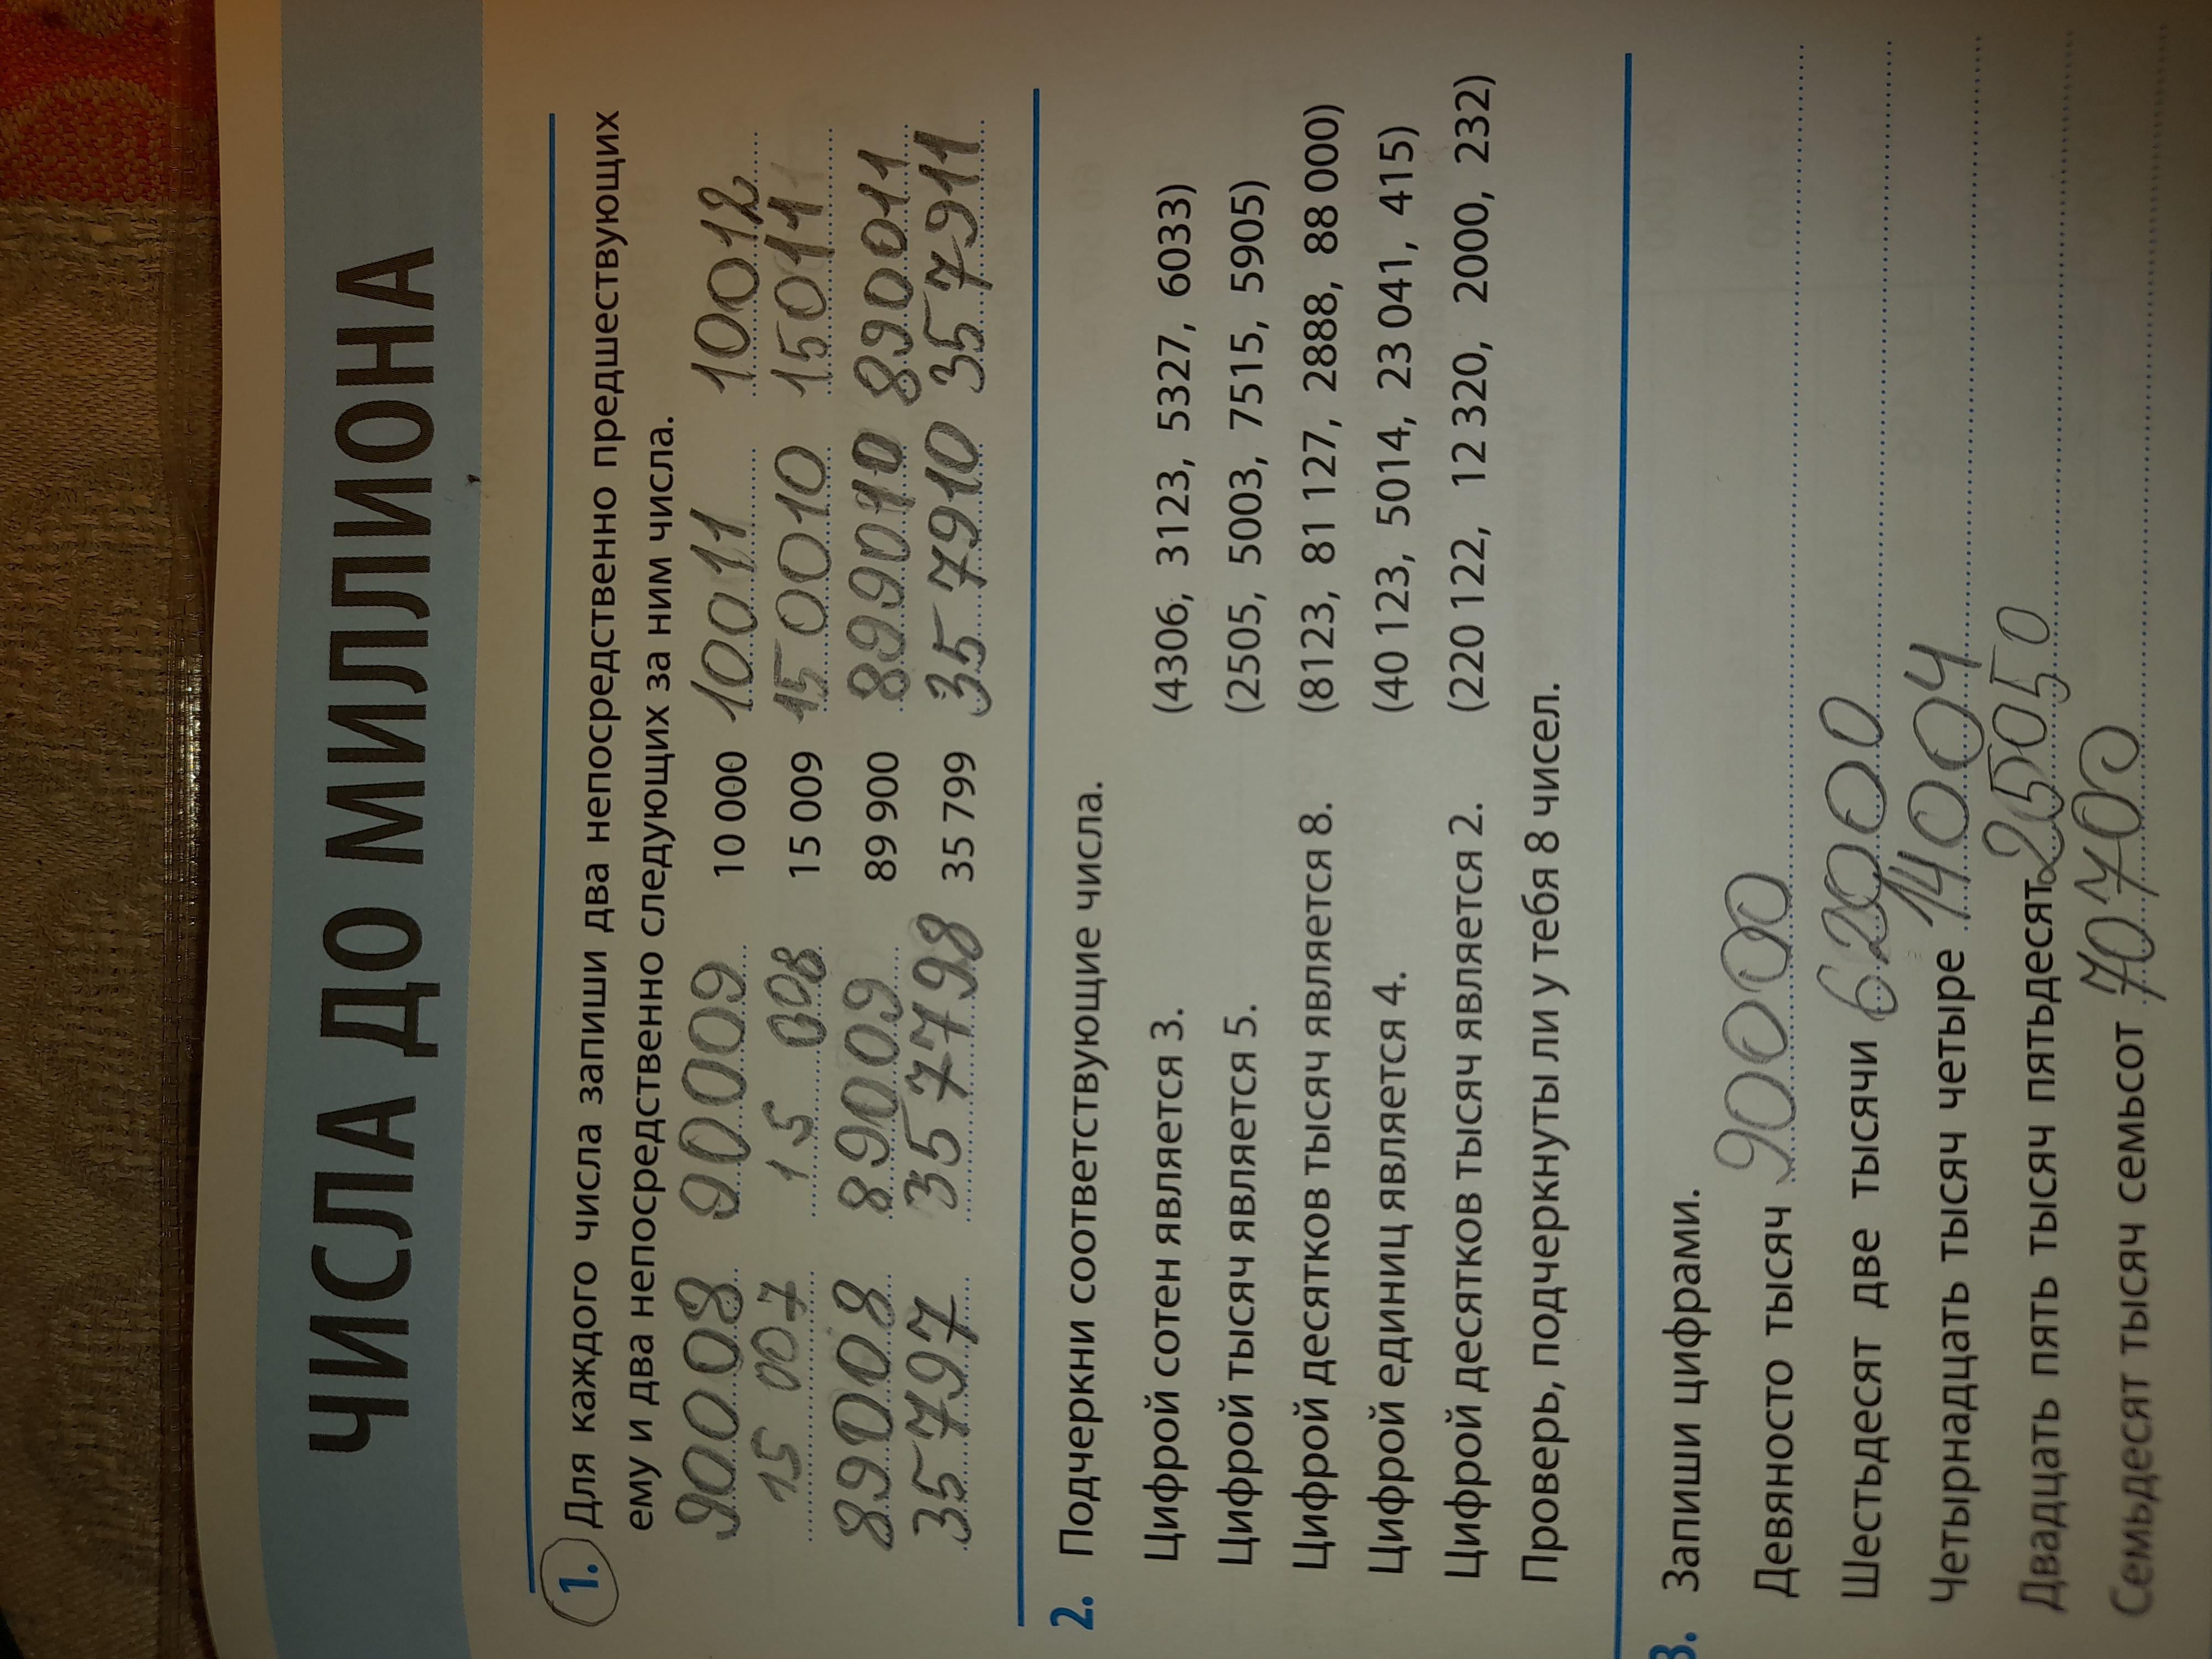 ЧИСЛА ДО МИЛЛИОНА
1. Для каждого числа запиши два непосредственно предшествующих
ему и два непосредственно следующих за ним числа.
90008 90009 10 000 10011 10012
15 007 15 008 15 009 15 0010 15011
89008 89009 89 900 899010 89011
35797 357798 35 799 357910 357911
2. Подчеркни соответствующие числа.
Цифрой сотен является 3. (4306, 3123, 5327, 6033)
Цифрой тысяч является 5. (2505, 5003, 7515, 5905)
Цифрой десятков тысяч является 8. (8123, 81 127, 2888, 88 000)
Цифрой единиц является 4. (40 123, 5014, 23 041, 415)
Цифрой десятков тысяч является 2. (220 122, 12 320, 2000, 232)
Проверь, подчеркнуты ли у тебя 8 чисел.
3. Запиши цифрами.
Девяносто тысяч 90000
Шестьдесят две тысячи 62000
Четырнадцать тысяч четыре 14004
Двадцать пять тысяч пятьдесят 25050
Семьдесят тысяч семьсот 70700